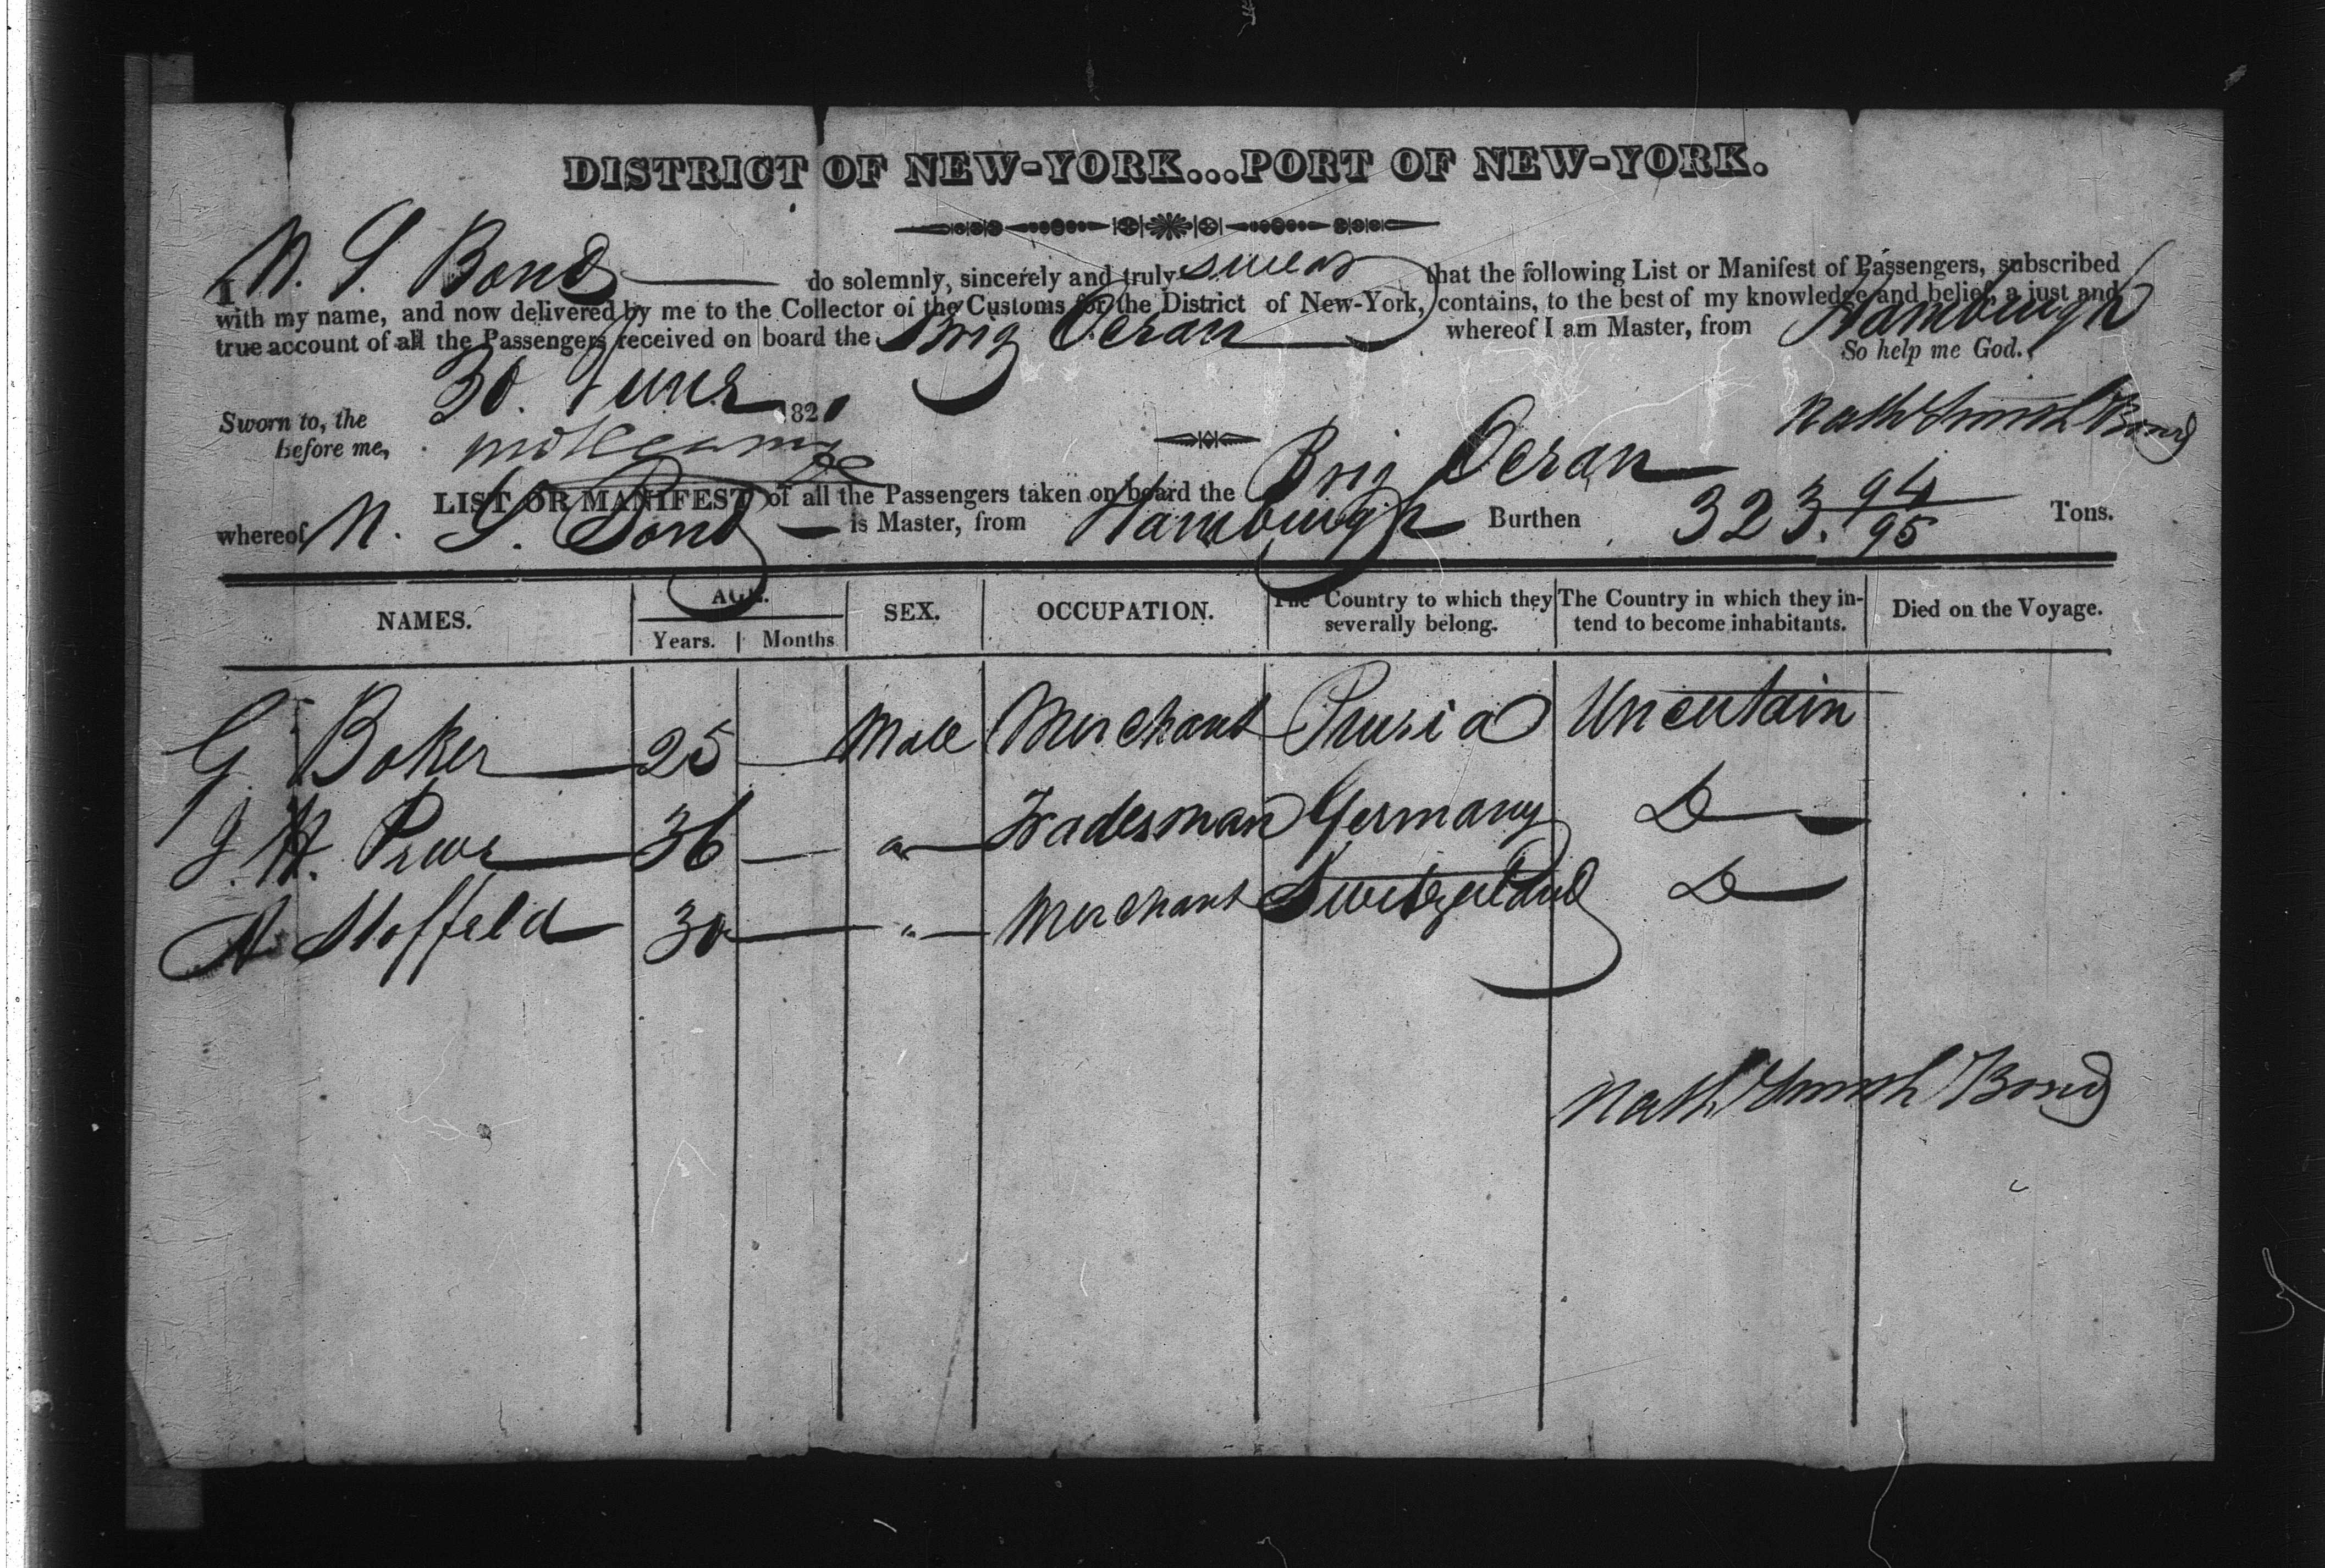 DISTRICT OF NEW-YORK...PORT OF NEW-YORK.
I N. S. Bond do solemnly, sincerely and truly swear that the following List or Manifest of Passengers, subscribed
with my name, and now delivered by me to the Collector of the Customs for the District of New-York, contains, to the best of my knowledge and belief, a just and
true account of all the Passengers received on board the Brig Ocean whereof I am Master, from Hamburgh
So help me God.
Sworn to, the 30. June 1821
before me,
Nath Smith Bond
LIST OR MANIFEST of all the Passengers taken on board the Brig Ocean
whereof N. S. Bond is Master, from Hamburgh Burthen 323. 94/95 Tons.
NAMES. AGE. Years. Months SEX. OCCUPATION. The Country to which they severally belong. The Country in which they intend to become inhabitants. Died on the Voyage.
G. Boker 25 Male Merchant Prusia Uncertain
J. H. 36 " Tradesman Germany Do
A Stoffeld 30 " Merchant Switzerland Do
Nath Smith Bond